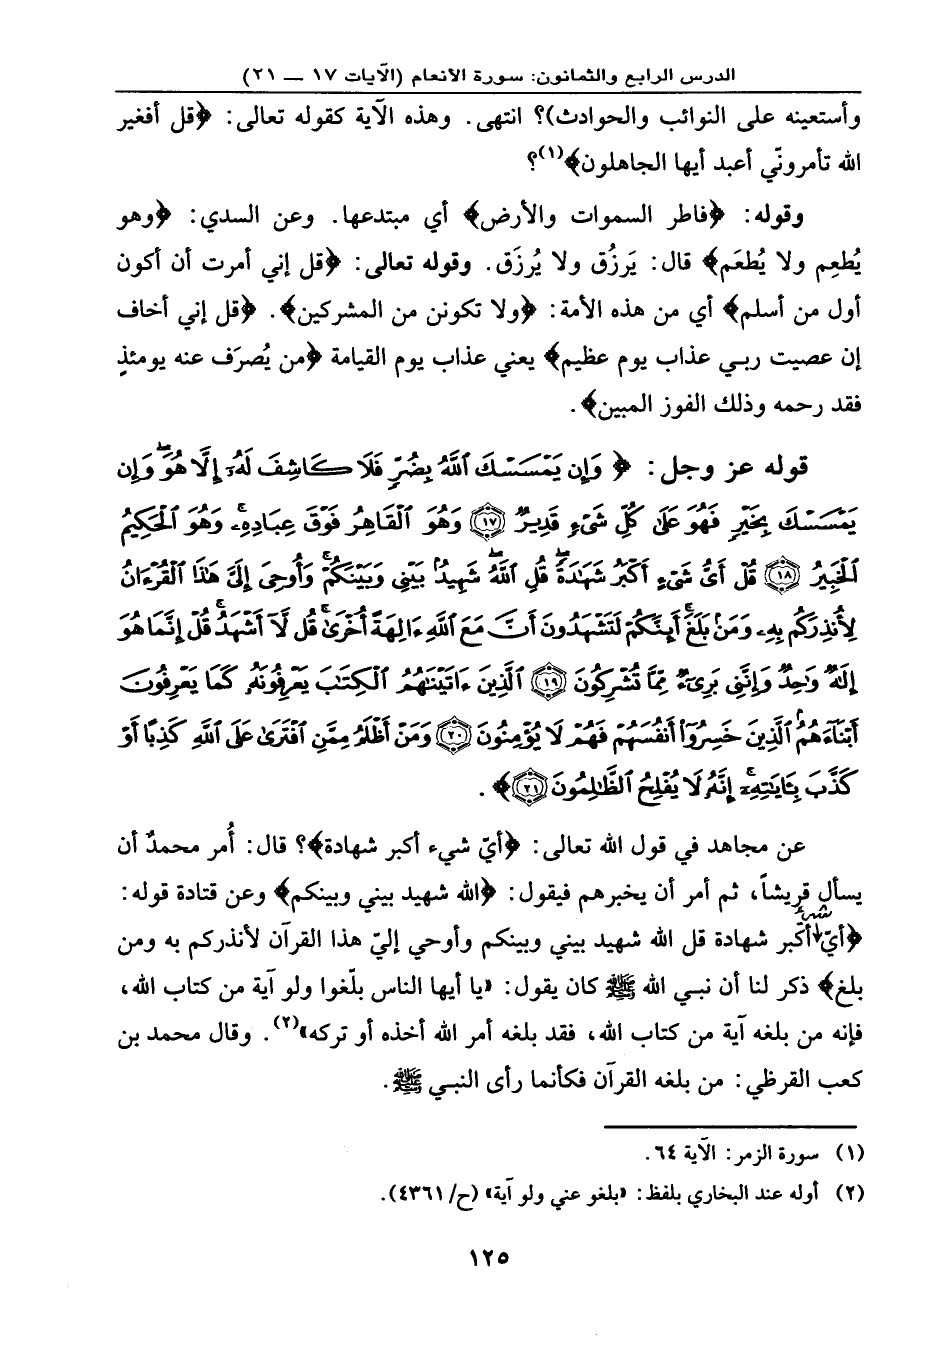 الدرس الرابع والثمانون: سورة الأنعام (الآيات ١٧ — ٢١)
وأستعينه على النوائب والحوادث)؟ انتهى. وهذه الآية كقوله تعالى: ﴿قل أفغير
الله تأمرونّي أعبد أيها الجاهلون﴾(١)؟
وقوله: ﴿فاطر السموات والأرض﴾ أي مبتدعها. وعن السدي: ﴿وهو
يُطعِم ولا يُطعَم﴾ قال: يَرزُق ولا يُرزَق. وقوله تعالى: ﴿قل إني أمرت أن أكون
أول من أسلم﴾ أي من هذه الأمة: ﴿ولا تكونن من المشركين﴾. ﴿قل إني أخاف
إن عصيت ربي عذاب يوم عظيم﴾ يعني عذاب يوم القيامة ﴿من يُصرَف عنه يومئذٍ
فقد رحمه وذلك الفوز المبين﴾.
قوله عز وجل: ﴿ وَإِن يَمْسَسْكَ ٱللَّهُ بِضُرٍّ فَلَا كَاشِفَ لَهُۥٓ إِلَّا هُوَۖ وَإِن
يَمْسَسْكَ بِخَيْرٍ فَهُوَ عَلَىٰ كُلِّ شَىْءٍ قَدِيرٌ ۝١٧ وَهُوَ ٱلْقَاهِرُ فَوْقَ عِبَادِهِۦۚ وَهُوَ ٱلْحَكِيمُ
ٱلْخَبِيرُ ۝١٨ قُلْ أَىُّ شَىْءٍ أَكْبَرُ شَهَٰدَةًۖ قُلِ ٱللَّهُۖ شَهِيدٌۢ بَيْنِى وَبَيْنَكُمْۚ وَأُوحِىَ إِلَىَّ هَٰذَا ٱلْقُرْءَانُ
لِأُنذِرَكُم بِهِۦ وَمَنۢ بَلَغَۚ أَئِنَّكُمْ لَتَشْهَدُونَ أَنَّ مَعَ ٱللَّهِ ءَالِهَةً أُخْرَىٰۚ قُل لَّآ أَشْهَدُۚ قُلْ إِنَّمَا هُوَ
إِلَٰهٌ وَٰحِدٌ وَإِنَّنِى بَرِىٓءٌ مِّمَّا تُشْرِكُونَ ۝١٩ ٱلَّذِينَ ءَاتَيْنَٰهُمُ ٱلْكِتَٰبَ يَعْرِفُونَهُۥ كَمَا يَعْرِفُونَ
أَبْنَآءَهُمُۘ ٱلَّذِينَ خَسِرُوٓا۟ أَنفُسَهُمْ فَهُمْ لَا يُؤْمِنُونَ ۝٢٠ وَمَنْ أَظْلَمُ مِمَّنِ ٱفْتَرَىٰ عَلَى ٱللَّهِ كَذِبًا أَوْ
كَذَّبَ بِـَٔايَٰتِهِۦٓۚ إِنَّهُۥ لَا يُفْلِحُ ٱلظَّٰلِمُونَ ۝٢١﴾.
عن مجاهد في قول الله تعالى: ﴿أيّ شيء أكبر شهادة﴾؟ قال: أُمر محمدٌ أن
يسأل قريشاً، ثم أمر أن يخبرهم فيقول: ﴿الله شهيد بيني وبينكم﴾ وعن قتادة قوله:
شيء
﴿أيّ أكبر شهادة قل الله شهيد بيني وبينكم وأوحي إليّ هذا القرآن لأنذركم به ومن
بلغ﴾ ذكر لنا أن نبي الله ﷺ كان يقول: «يا أيها الناس بلّغوا ولو آية من كتاب الله،
فإنه من بلغه آية من كتاب الله، فقد بلغه أمر الله أخذه أو تركه»(٢). وقال محمد بن
كعب القرظي: من بلغه القرآن فكأنما رأى النبي ﷺ.
(١) سورة الزمر: الآية ٦٤.
(٢) أوله عند البخاري بلفظ: «بلغو عني ولو آية» (ح/٤٣٦١).
١٢٥